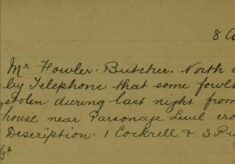 8 A
Mr Fowler. Butcher. North
by Telephone that some fowls
stolen during last night from
house near Parsonage Level cro
Description: 1 Cockrell & 3 Pu